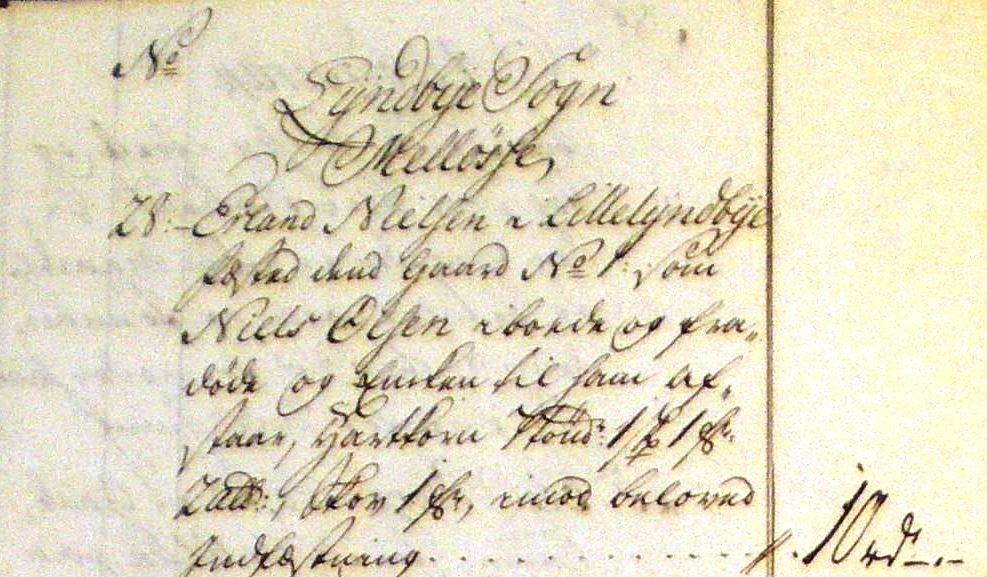 No
Lyndbye Sogn
Melløsse,
28: Erland Nielsen i Lillelyndbye
fæsted dend Gaard No 1: som
Niels Olsen iboede og fra„
døde og Enken til ham af„
staar, Hartkorn 1 1
2 alb:, Skov 1 f:, imod beloved
Indfæstning . . . . . . . . . . . . . 10 rd -.-